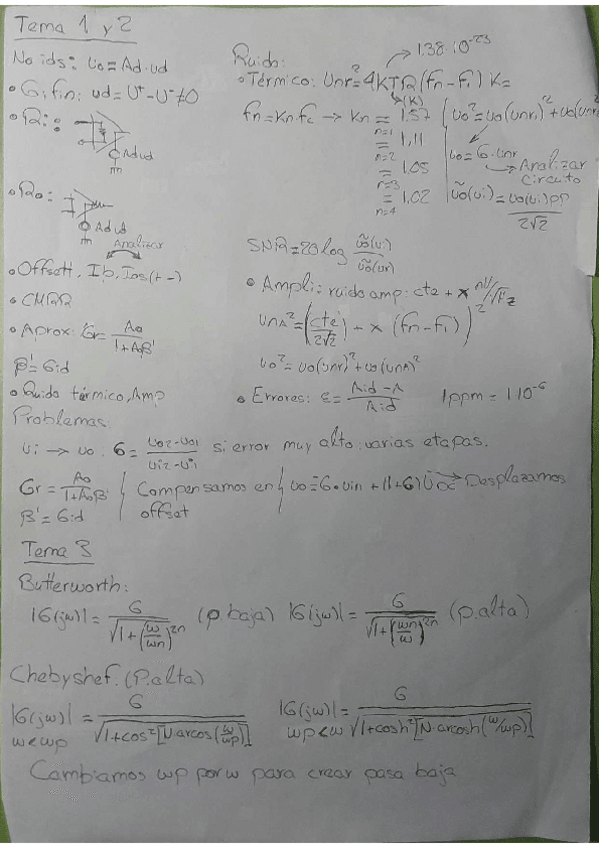 Tema 1 y 2
No ids: uo = Ad·ud
• G, fin: ud = U⁺ - U⁻ ≠ 0
• Ri:
Ad ud
• Ro:
Ad ud
Analizar
• Offsett, Ib, Ios (+ -)
• CMRR
• Aprox: Gr = Ao / 1+Aoβ'
β' = Gid
• Ruido térmico, Amp
Ruido:
→ 1,38·10^-23
• Térmico: Unr² = 4KTR (fn - fi) K=
(K)
fn = Kn·fc → Kn = 1.57
n=1
= 1,11
n=2
= 1,05
n=3
= 1,02
n=4
uo² = uo(unr)² + uo(unr)²
uo = G·unr
→ Analizar circuito
ũo(ui) = uo(ui)pp / 2√2
SNR = 20 log ũo(ui) / ũo(ur)
• Ampli: ruido amp: cte + x nV/√Hz
UnA² = (cte / 2√2 + x (fn - fi))²
uo² = uo(unr)² + uo(unA)²
• Errores: ε = Aid - A / Aid 1ppm = 1·10^-6
Problemas:
ui → uo: G = uo2 - uo1 / ui2 - ui1 si error muy alto: varias etapas.
Gr = Ao / 1+Aoβ' { Compensamos en offset { uo = G·uin + (1+G) UDC → Desplazamos
β' = Gid
Tema 3
Butterworth:
|G(jw)| = G / √(1+(w/wn)^2n) (p.baja) |G(jw)| = G / √(1+(wn/w)^2n) (p.alta)
Chebyshef. (P.alta)
|G(jw)| = G / √(1+cos²[N·arcos(w/wp)])
w < wp
|G(jw)| = G / √(1+cosh²[N·arcosh(w/wp)])
wp < w
Cambiamos wp por w para crear pasa baja